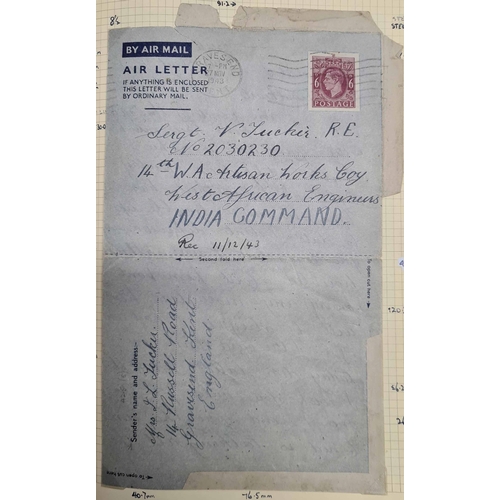 8's
91.2
BY AIR MAIL
AIR LETTER
IF ANYTHING IS ENCLOSED
THIS LETTER WILL BE SENT
BY ORDINARY MAIL.
GRAVESEND
NOV
6 6
POSTAGE
Sergt. V Tucker. R.E.
No 2030230
14th W.A. Artisan Works Coy
West African Engineers
INDIA COMMAND.
Rec 11/12/43
Second fold here
To open cut here
Sender's name and address:-
Mrs J L Tucker
14 Russell Road
Gravesend Kent
England
To open cut here
76.5mm